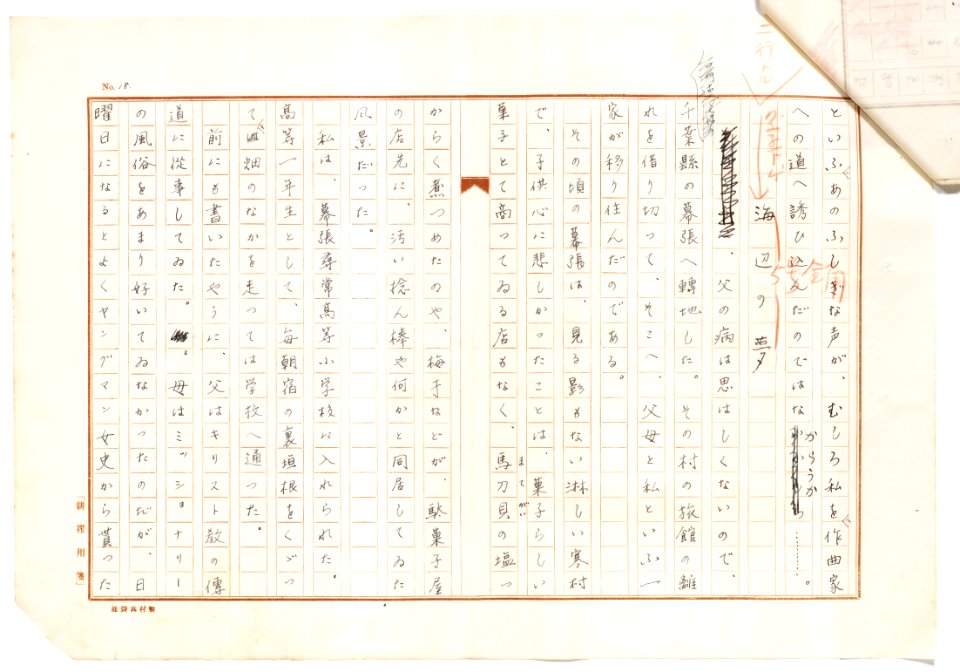 No. 18.
といふあのふしぎな声が、むしろ私を作曲家
への道へ誘ひ込んだのではなからうか………。
二行トル
2字下ゲ
海辺の夢
5号全用
父の病は思はしくないので、
千葉縣の幕張へ轉地した。その村の旅館の離
れを借り切つて、そこへ、父母と私といふ一
家が移り住んだのである。
その頃の幕張は、見る影もない淋しい寒村
で、子供心に悲しかつたことは、菓子らしい
菓子とて商つてゐる店もなく、馬刀貝の塩つ
まてがい
から煮つめたのや、梅干などが、駄菓子屋
の店先に、汚い捻ん棒や何かと同居してゐた
風景だつた。
私は、幕張尋常高等小学校に入れられた。
高等一年生として、毎朝宿の裏垣根をくゞつ
て畑のなかを走つては学校へ通つた。
前にも書いたやうに、父はキリスト教の傳
道に從事してゐた。母はミッショナリー
の風俗をあまり好いてゐなかつたのだが、日
曜日になるとよくヤングマン女史から貰つた